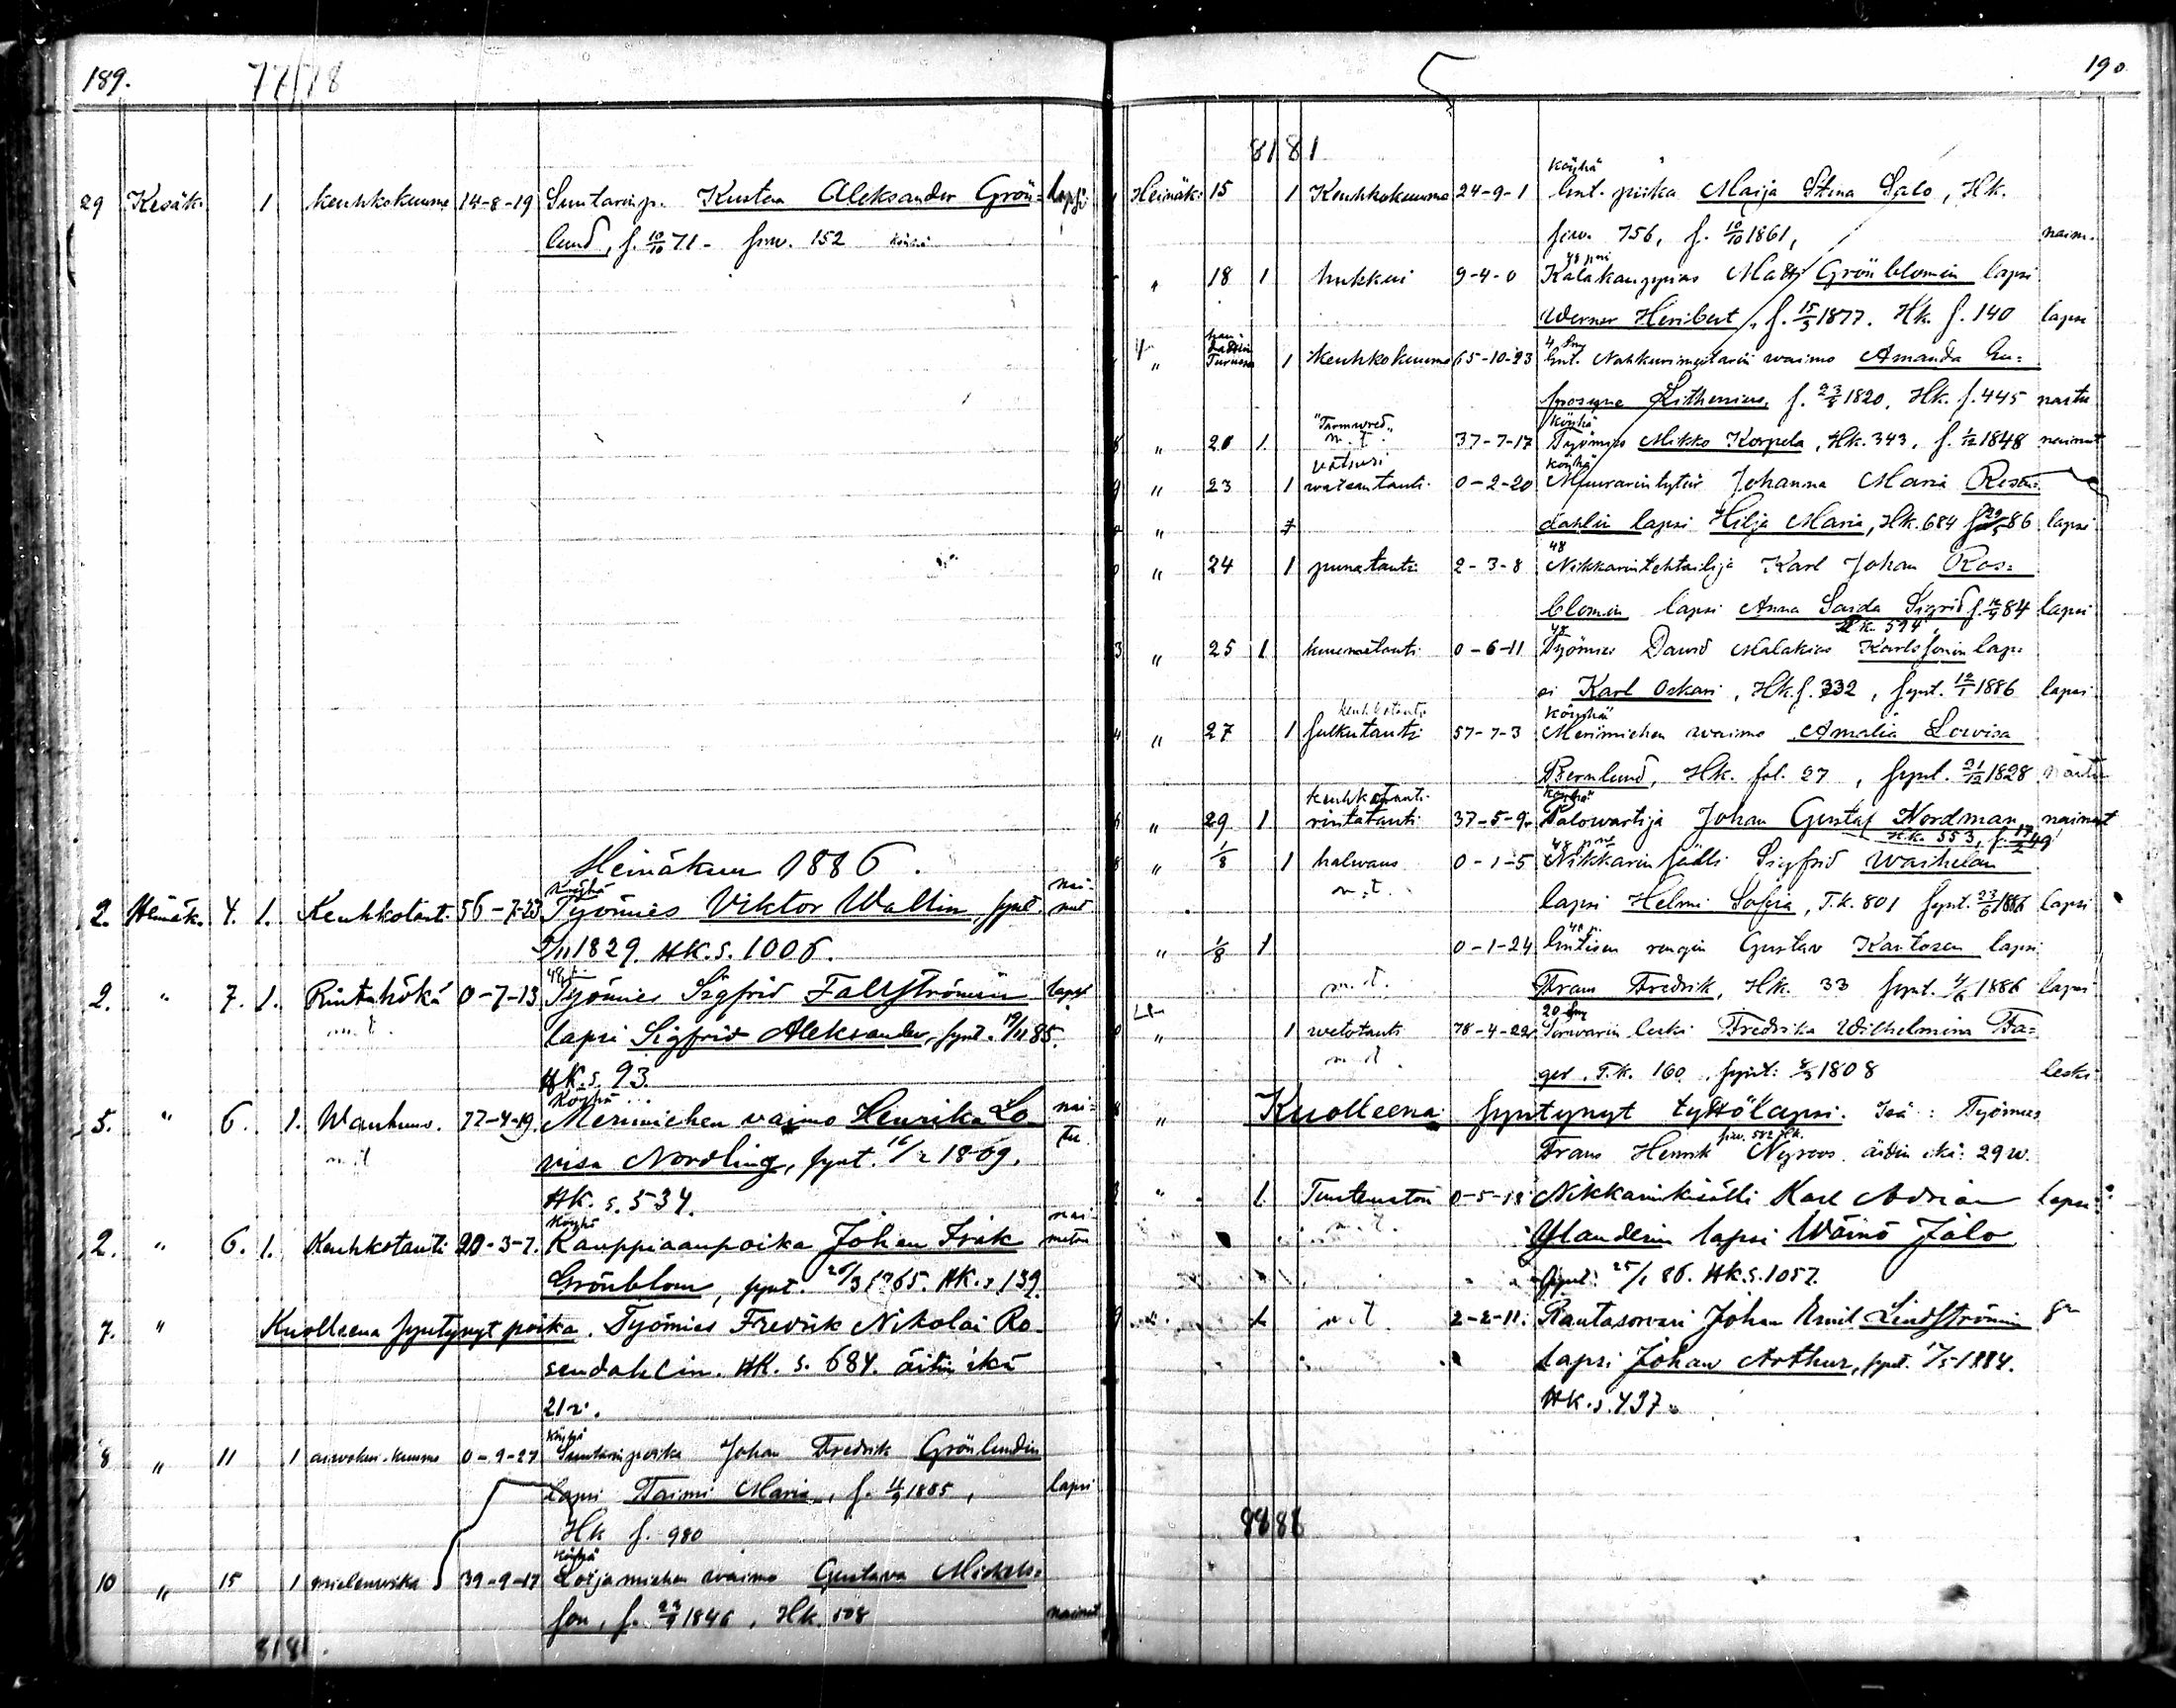 189.
77 78
29 Kesäk. 1 keuhkokuume 14-8-19 Suutarinp. Kustaa Aleksander Grön= lapsi
lund, f. 10/10 71 - siw. 152 köyhä
Heinäkuu 1886.
Köyhä nai-
2. Heinäk. 4. 1. Keuhkotaut. 56-7-23 Työmies Viktor Wallin, synt. nut
2/11 1829. HK. s. 1006.
48 p.
2. " 7. 1. Rintahökä 0-7-13 Työmies Sigfrid Fallströmin lapsi
m. t. lapsi Sigfrid Aleksander, synt. 19/11 85.
HK. s. 93.
Köyhä nai-
5. " 6. 1. Wanhuus. 77-4-19. Merimiehen vaimo Henrika Lo- tu.
m. t. visa Nordling, synt. 16/2 1809.
HK. s. 534.
Köyhä nai-
2. " 6. 1. Keuhkotauti 20-3-7. Kauppiaanpoika Johan Isak metoin
Grönblom, synt. 26/3 1865. HK. s. 139.
7. " Kuolleena syntynyt poika. Työmies Fredrik Nikolai Ro-
sendahlin. HK. s. 684. äitin ikä
21 v.
Köyhä
8 " 11 1 aivokuv. kuume 0-9-27 Suutarinpoika Johan Fredrik Grönlundin
lapsi Taimi Maria, f. 14/9 1885, lapsi
Hk f. 980
Köyhä
10 " 15 1 mielenvika 39-9-17 Lotjamiehen waimo Gustava Mickels=
son, f. 29/9 1846, Hk. 508 nainut
81 81
190
5
81 81
Köyhä
Heinäk. 15 1 Keuhkokuume 24-9-1 Ent. piika Maija Stina Salo, Hk.
siw. 756, f. 10/10 1861, naim.
48 pni
" 18 1 hukkui 9-4-0 Kalakauppias Matts Grönblomin lapsi
Werner Heribert, f. 15/3 1877. Hk. f. 140 lapsi
haudattiin
" Turussa 1 keuhkokuume 65-10-23 Ent. Nahkurimestarin waimo Amanda Eu=
frosyne Lithenius, f. 23/8 1820, Hk. f. 445 naitu
"Tarmwred" Köyhä
8 " 20 1 m. t. 37-7-17 Työmies Mikko Korpela, Hk. 343, f. 1/12 1848 nainut
Köyhä
9 " 23 1 watsantauti 0-2-20 Muurarin tytär Johanna Maria Rosen=
" dahlin lapsi Hilja Maria, Hk. 684 86 lapsi
48
" 24 1 punatauti 2-3-8 Nikkarintehtailija Karl Johan Ros=
blomin lapsi Anna Saida Sigrid f. 16/4 84 lapsi
Hk. 594
48
3 " 25 1 kuumetauti 0-6-11 Työmies David Malakias Karlssonin lap=
si Karl Oskari, Hk. f. 332, synt. 12/1 1886 lapsi
keuhkotauti Köyhä
4 " 27 1 sulkutauti 57-7-3 Merimiehen waimo Amalia Lowisa
Bernlund, Hk. fol. 27, synt. 21/12 1828. naitu
keuhkotauti Köyhä
" 29 1 rintatauti 37-5-9 Palowartija Johan Gustaf Nordman nainut
Hk. 553, f. 17/2 49
48 pni
" 1/8 1 halwaus 0-1-5 Nikkarin sälli Sigfrid Waihelan
m. t. lapsi Helmi Sofia, T.k. 801 synt. 23/6 1886 lapsi
" 1/8 1 0-1-24 Entisen rengin Gustav Kantosen lapsi
m. t. Frans Fredrik, Hk. 33 synt. 4/6 1886 lapsi
" 1 wetotauti 78-4-22 Sorwarin leski Fredrika Wilhelmina Fa=
m. t. ger. T.k. 160. synt: 4/3 1808 leski
" Kuolleena syntynyt tyttölapsi. Isä: Työmies
siw. 502 Hk.
Frans Henrik Nyroos äidin ikä: 29 w.
" 1. Tuntematon 0-5-18 Nikkarinkisälli Karl Adrian lapsi.
m. t. Ylanderin lapsi Wäinö Jalo
synt. 25/1 86. HK. s. 1057.
" 1 m. t. 2-2-11. Rautasorwari Johan Emil Lindströmin
lapsi Johan Arthur, synt. 17/5 1884.
HK. s. 437.
88 88